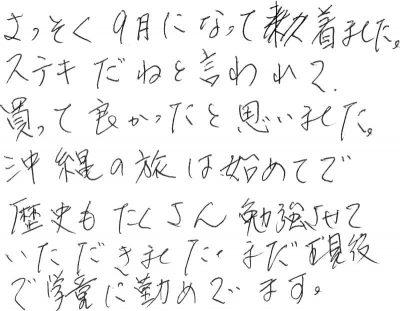 さっそく9月になって数久着ました。
ステキだねと言われて、
買って良かったと思いました。
沖縄の旅は始めてで
歴史もたくさん勉強させて
いただきました。まだ現役
で学童に勤めています。